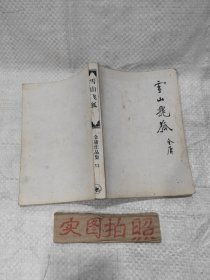 雪山飛狐
金庸
雪山飛狐
金庸作品集
实图拍照